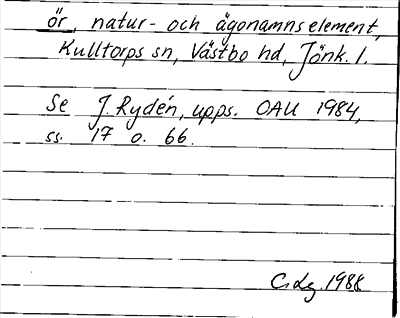 ör, natur- och ägonamnselement,
Kulltorps sn, Västbo hd, Jönk. l.
Se J. Rydén, upps. OAU 1984,
ss. 17 o. 66.
C. Lg. 1988